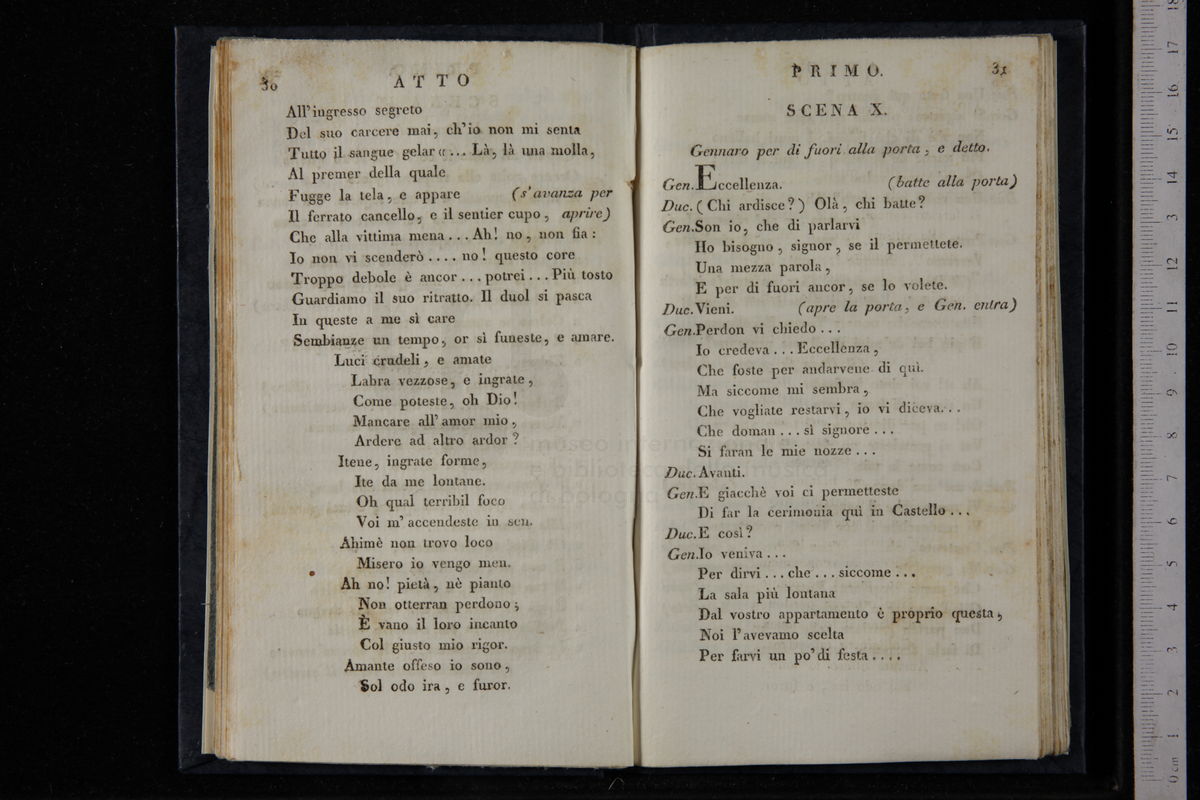 30
ATTO
All'ingresso segreto
Del suo carcere mai, ch'io non mi senta
Tutto il sangue gelar « ... Là, là una molla,
Al premer della quale
Fugge la tela, e appare (s'avanza per
Il ferrato cancello, e il sentier cupo, aprire)
Che alla vittima mena ... Ah! no, non fia:
Io non vi scenderò .... no! questo core
Troppo debole è ancor ... potrei ... Più tosto
Guardiamo il suo ritratto. Il duol si pasca
In queste a me sì care
Sembianze un tempo, or sì funeste, e amare.
Luci crudeli, e amate
Labra vezzose, e ingrate,
Come poteste, oh Dio!
Mancare all'amor mio,
Ardere ad altro ardor?
Itene, ingrate forme,
Ite da me lontane.
Oh qual terribil foco
Voi m'accendeste in sen.
Ahimè non trovo loco
Misero io vengo men.
Ah no! pietà, nè pianto
Non otterran perdono;
È vano il loro incanto
Col giusto mio rigor.
Amante offeso io sono,
Sol odo ira, e furor.
PRIMO.
31
SCENA X.
Gennaro per di fuori alla porta, e detto.
Gen. Eccellenza. (batte alla porta)
Duc. (Chi ardisce?) Olà, chi batte?
Gen. Son io, che di parlarvi
Ho bisogno, signor, se il permettete.
Una mezza parola,
E per di fuori ancor, se lo volete.
Duc. Vieni. (apre la porta, e Gen. entra)
Gen. Perdon vi chiedo ...
Io credeva ... Eccellenza,
Che foste per andarvene di quì.
Ma siccome mi sembra,
Che vogliate restarvi, io vi diceva...
Che doman ... sì signore ...
Si faran le mie nozze ...
Duc. Avanti.
Gen. E giacchè voi ci permetteste
Di far la cerimonia quì in Castello ...
Duc. E così?
Gen. Io veniva ...
Per dirvi ... che ... siccome ...
La sala più lontana
Dal vostro appartamento è proprio questa,
Noi l'avevamo scelta
Per farvi un po'di festa ....
museo internazionale
e biblioteca della musica
di bologna
0 cm 1 2 3 4 5 6 7 8 9 10 11 12 13 14 15 16 17 18